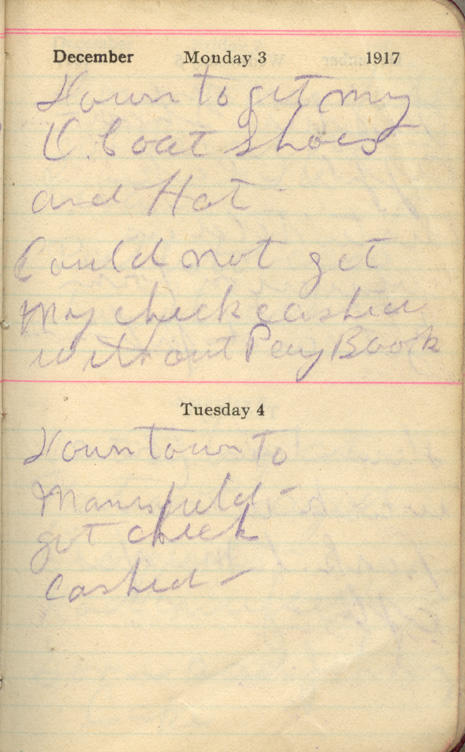 December Monday 3 1917
Down to get my
O. Coat Shoes
and Hat
Could not get
My check cashed
without Pay Book
Tuesday 4
Down town to
Mansfield -
got check
Cashed -